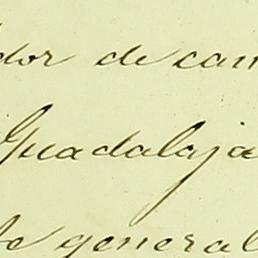 dor de cam
Guadalaja
te general